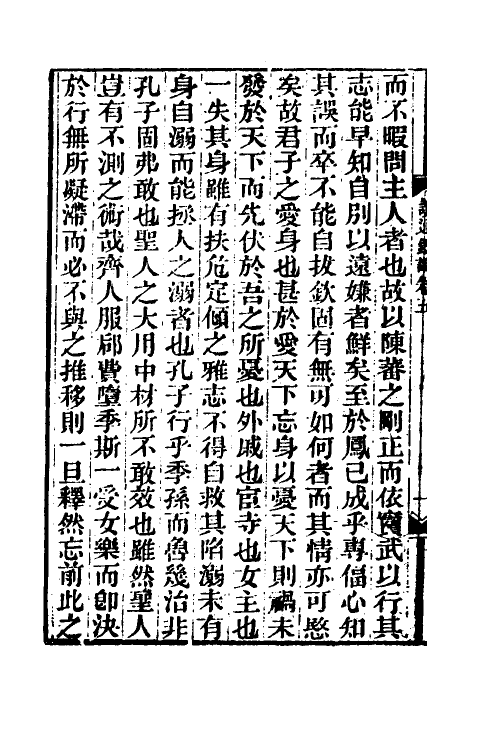 讀通鑑論卷五
而不暇問主人者也故以陳蕃之剛正而依竇武以行其
志能早知自別以遠嫌者鮮矣至於鳳已成乎專偪心知
其誤而卒不能自拔欽固有無可如何者而其情亦可愍
矣故君子之愛身也甚於愛天下忘身以憂天下則禍未
發於天下而先伏於吾之所憂也外戚也宦寺也女主也
一失其身雖有扶危定傾之雅志不得自救其陷溺未有
身自溺而能拯人之溺者也孔子行乎季孫而魯幾治非
孔子固弗敢也聖人之大用中材所不敢效也雖然聖人
豈有不測之術哉齊人服郈費墮季斯一受女樂而卽決
於行無所凝滯而必不與之推移則一旦釋然忘前此之